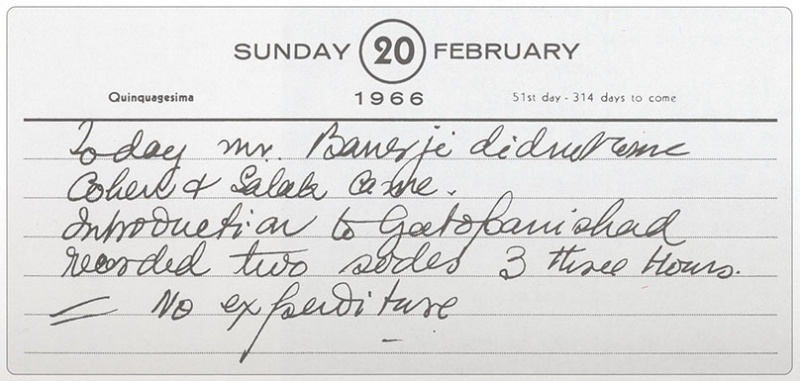 SUNDAY 20 FEBRUARY
Quinquagesima 1966 51st day - 314 days to come
Today mr. Banerji didnot come
Cohen & Salak came.
Introduction to Geetopanishad
recorded two sides 3 three Hours.
= No expenditure
-